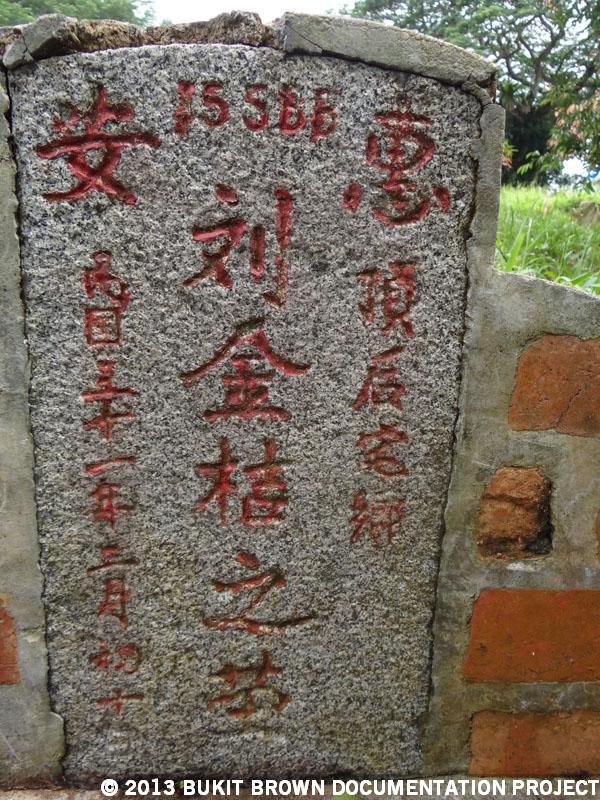 惠安
15566
頂后宅鄉
刘金桔之墓
民国三十一年三月初十
© 2013 BUKIT BROWN DOCUMENTATION PROJECT